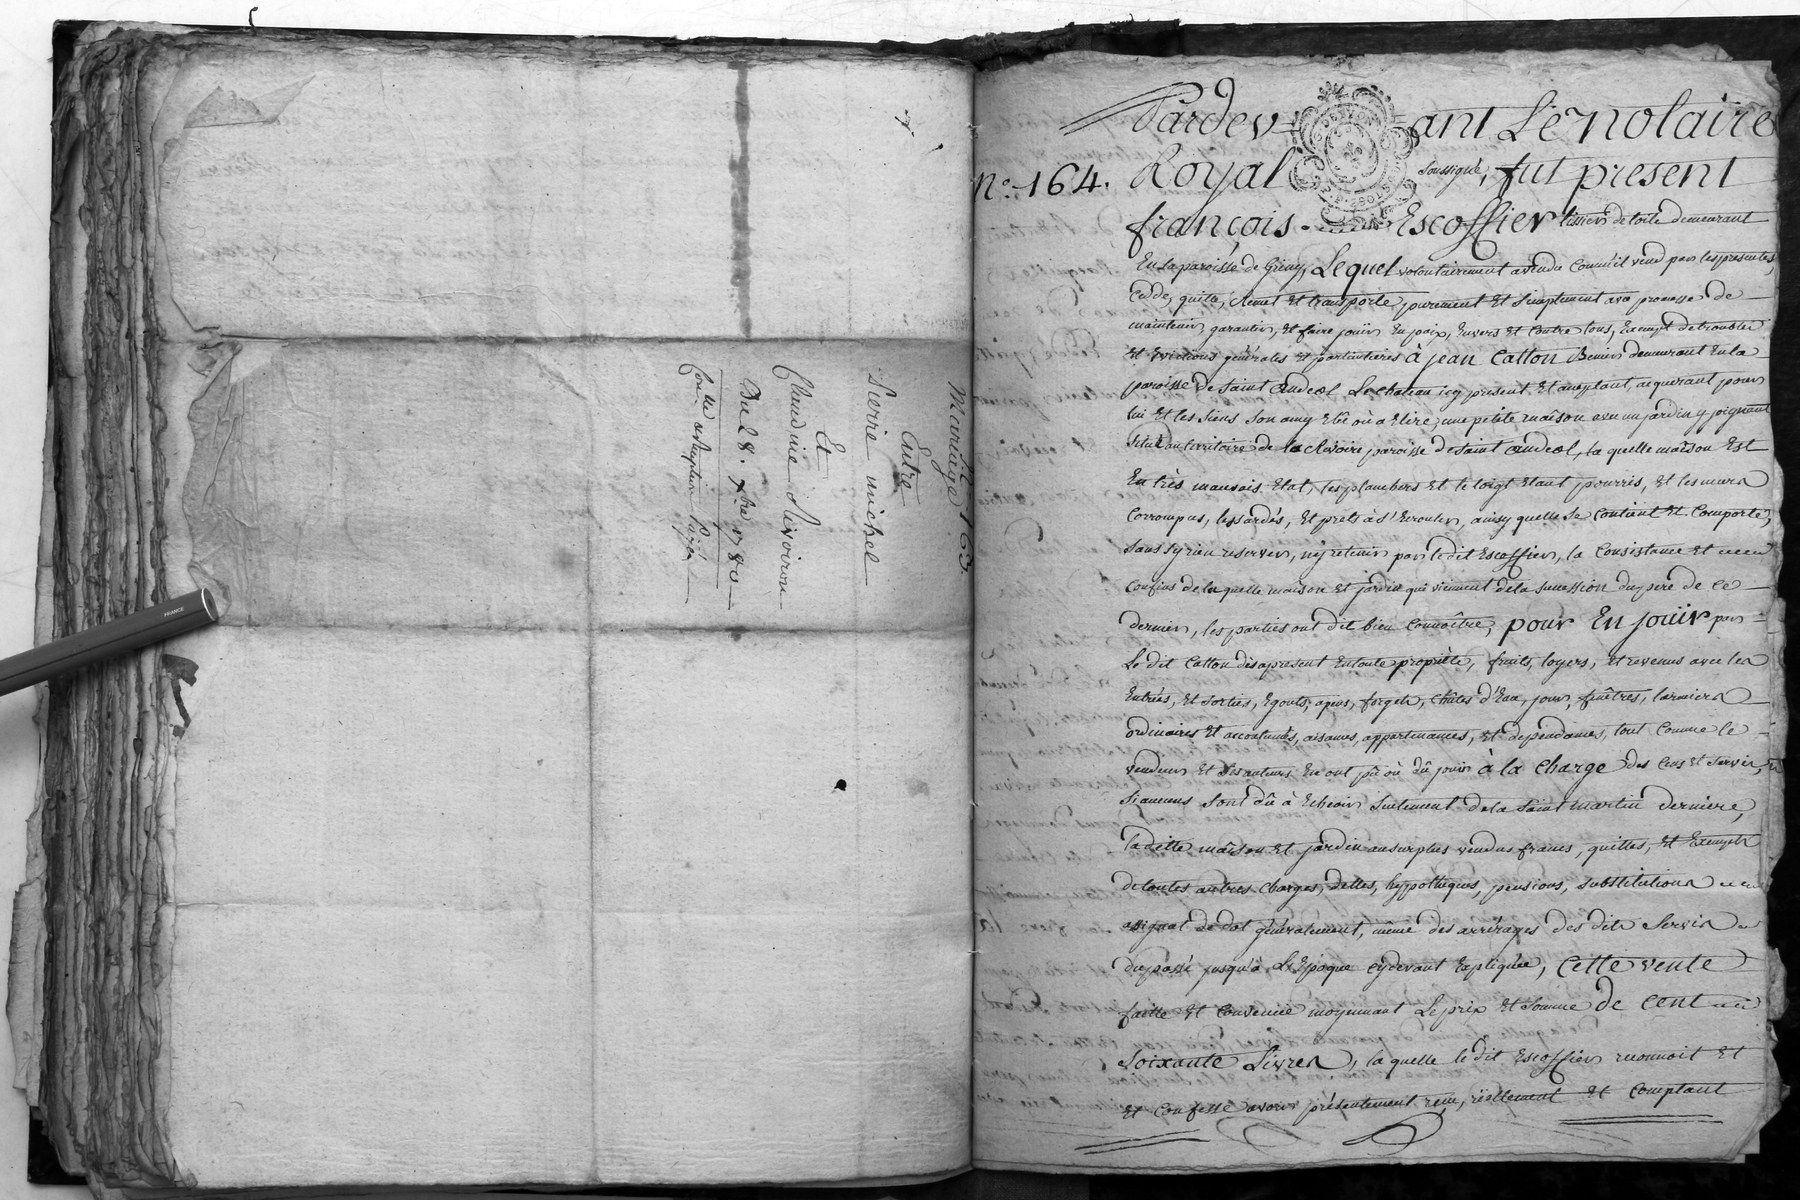 n.° 163.
Mariage
Entre
Pierre michel
Et
Claudine
Du 28. xbre 1780
FRANCE
n.° 164.
Pardevant Le notaire
Royal soussigné, fut present
françois Escoffier tissier de toile demeurant
En la paroisse de Lequel volontairement a vendu Comme il vend par les presentes,
Cedde, quitte, Remet Et transporte, purement Et simplement avec promesse de
maintenir, garantir, Et faire jouir En paix, Envers Et Contre tous, Exempt de troubles
Et Evictions générales Et particulieres à jean Catton demeurant En la
paroisse de Saint andeol Le chateau icy present Et acceptant, acquerant pour
lui Et les siens son amy Elû ou a Elire, une petite maison avec un jardin y joignant
Situé au territoire de la paroisse de Saint andeol, la quelle maison Est
En très mauvais Etat, les planchers Et le toigt Etant pourris, Et les murs
Corrompus, lessardés, Et prets à s'Ecrouler, ainsy quelle se Contient Et Comporte,
Sans y rien reserver, ny retenir par le dit Escoffier, la Consistance Et
Confins de la quelle maison Et jardin qui viennent de la succession du pere de ce
dernier, les parties ont dit bien Connoître, pour En jouir par
Le dit Catton dès apresent En toute propriété, fruits, loyers, Et revenus avec les
Entrées, Et sorties, Egouts, forgets, chûtes d'Eau, jours, fenêtres, larmiers
ordinaires Et accoutumés, aisances, appartenances, Et dependances, tout Comme le
vendeur Et ses auteurs En ont pû où dû jouir à la charge des Cens Et Servis,
Si aucuns Sont dû à Echeoir Seulement de la Saint martin derniere,
la dette maison Et jardin au surplus vendus francs, quittes, Et Exempts
de toutes autres charges, dettes, hyppotheques, pensions, substitutions
assignat de dot généralement, même des arrérages des dits Servis
du passé jusqu'à L'Epoque cydevant Expliquée, Cette vente
faitte Et Convenue moyennant Le prix Et Somme de Cent
Soixante Livres, la quelle le dit Escoffier reconnoit Et
Et Confesse avoir présentement reçu, réellement Et Comptant